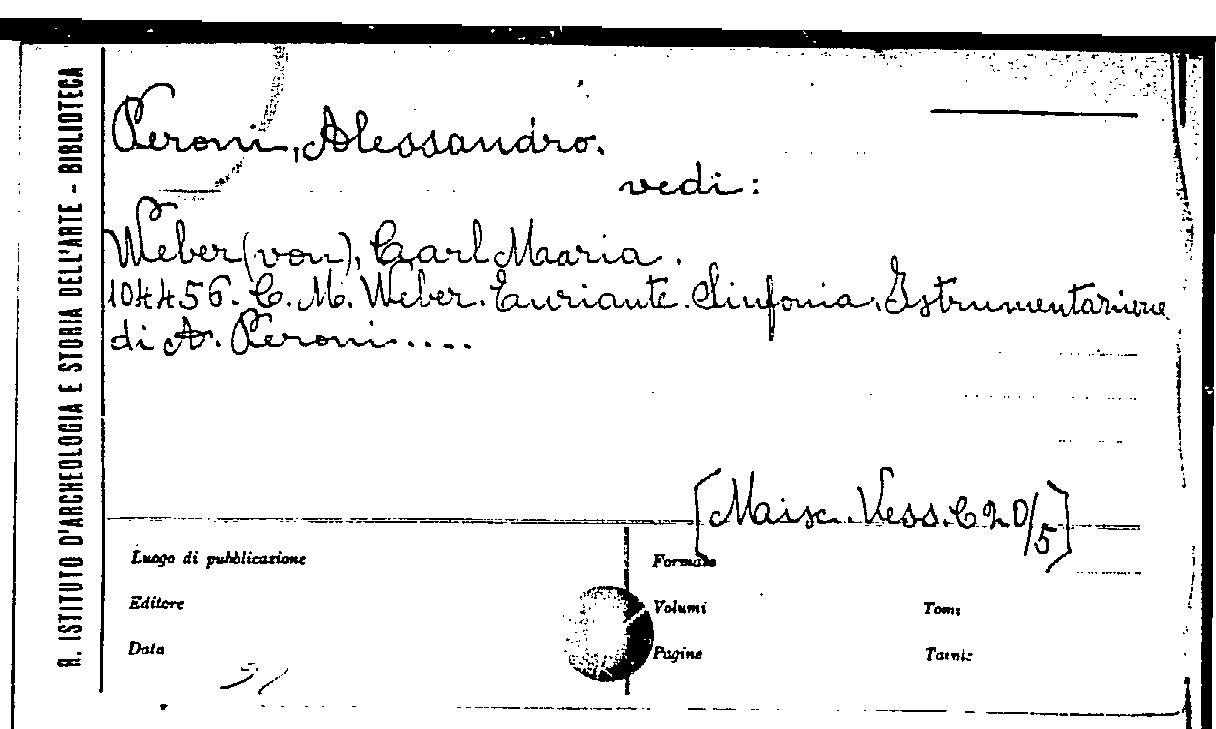 R. ISTITUTO D'ARCHEOLOGIA E STORIA DELL'ARTE - BIBLIOTECA
Peroni, Alessandro.
vedi:
Weber (von), Carl Maaria.
104456. C. M. Weber. Euriante. Sinfonia. Istrumentazione
di A. Peroni....
[Misc. Vess. C 20/5]
Luogo di pubblicazione
Formato
Editore
Volumi
Tomi
Data
Pagine